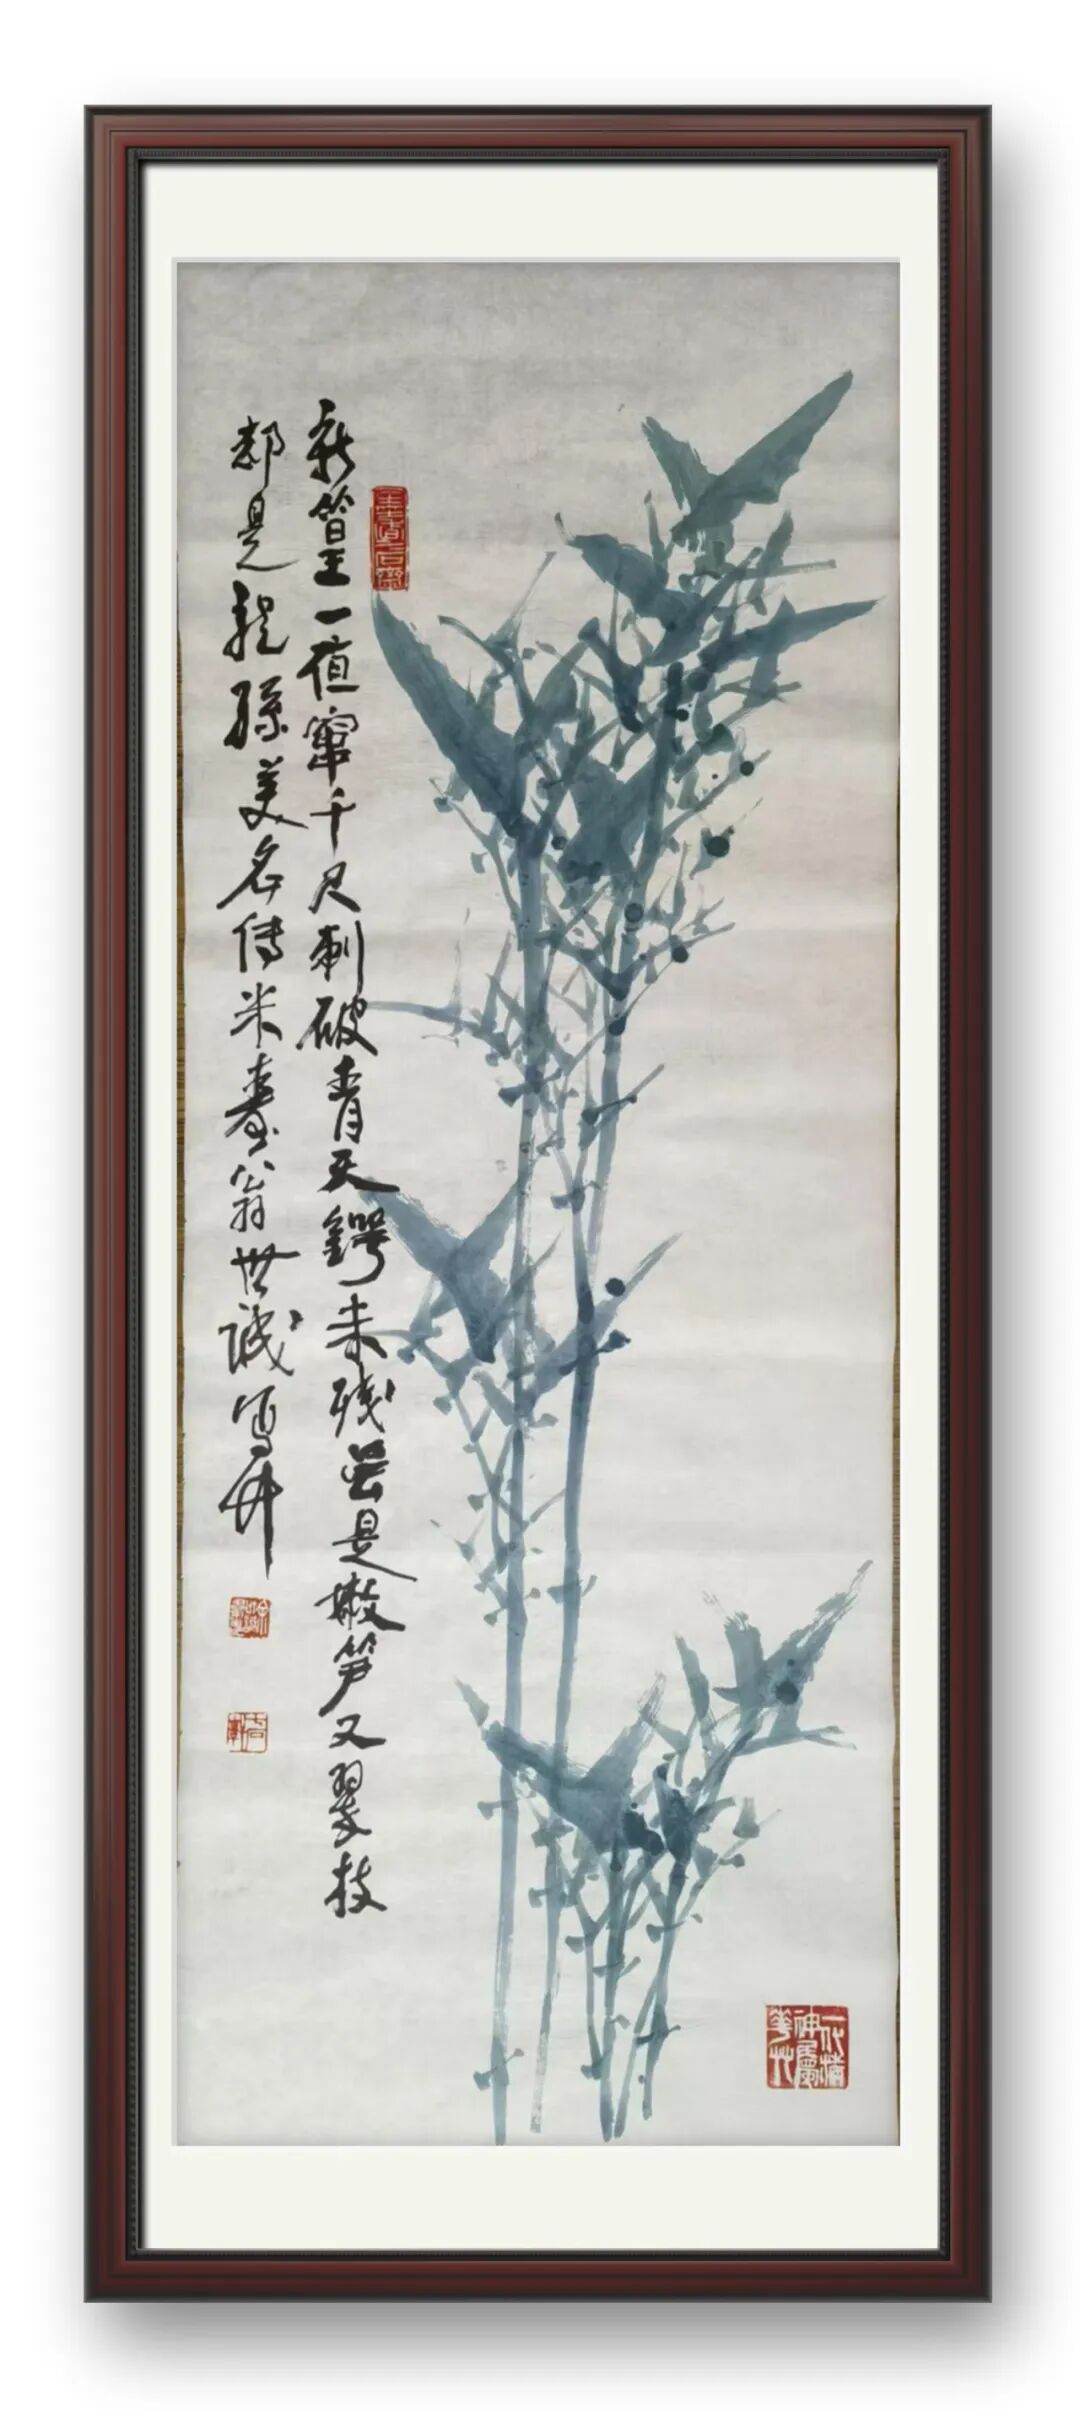 新篁一值窜千尺刺破青天锷未残虽是嫩笋又翠枝
都是龙孙美名传米寿翁世诚写竹